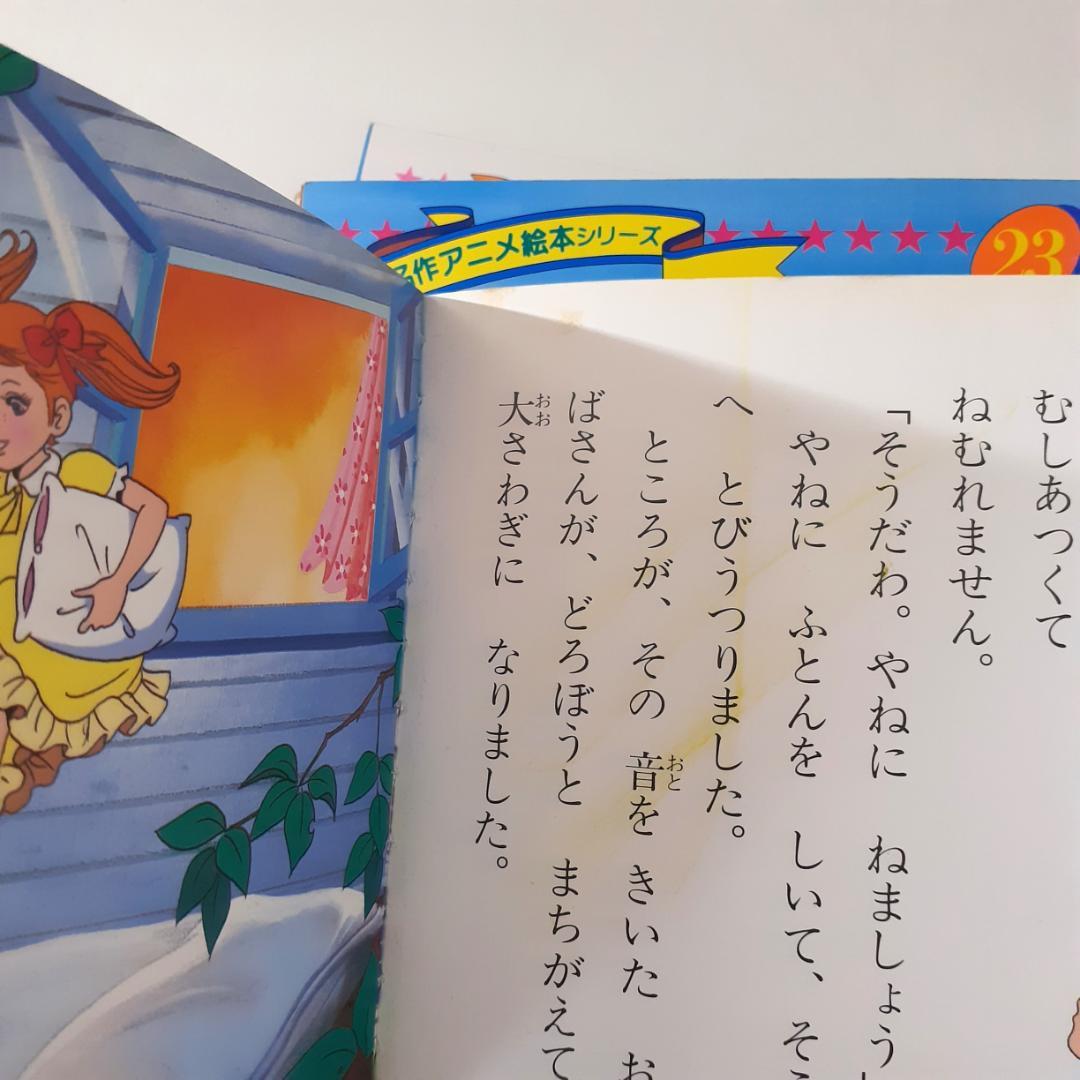 作アニメ絵本シリーズ
23
むしあつくて
ねむれません。
「そうだわ。やねに ねましょう」
やねに ふとんを しいて、そ
へ とびうつりました。
ところが、その 音を きいた お
おと
ばさんが、どろぼうと まちがえて
大さわぎに なりました。
おお